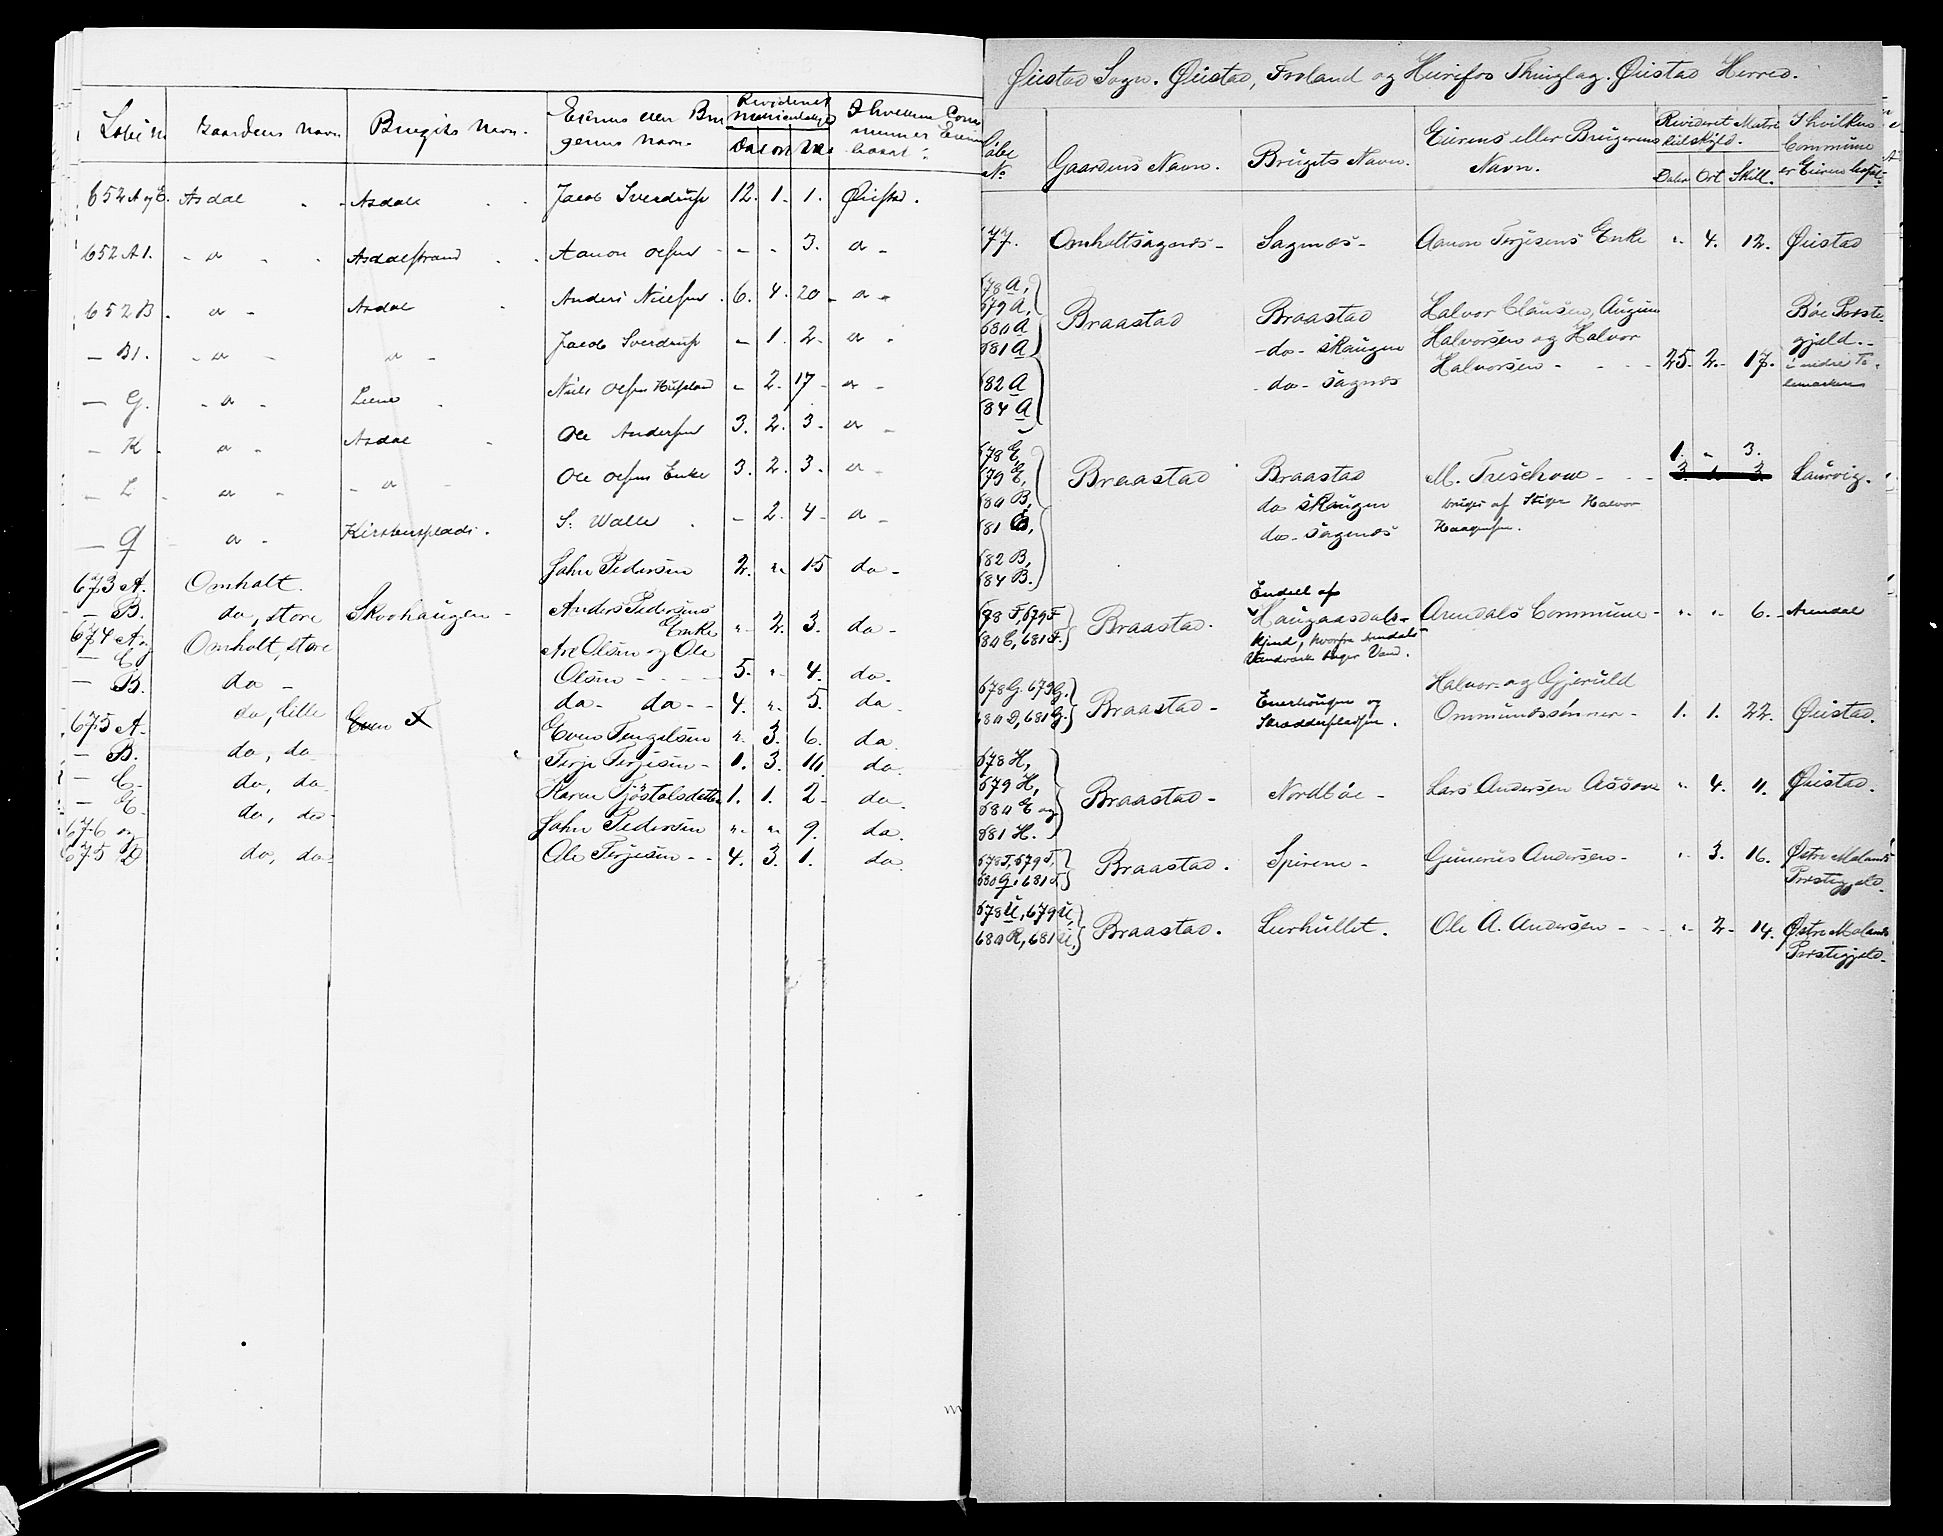 Løbe No Gaardens Navn Brugets Navn. Eierens eller Bru Revideret I hvilken Com
gerens Navn. Matriculskyld mune er Eieren
Daler Ort Sk bosat?
652 A og E. Asdal - Asdal Jacob Sverdrup 12. 1. 1. Øiestad.
652 A1. - do - Asdalstrand Aanon Olsen - - 3. do -
652 B. do - Asdal Anders Nielsen 6. 4. 20 - do -
- B1. - do - do - Jacob Sverdrup - 1. 2 - do -
- G. - do - Liene Niels Olsen - 2. 17 - do -
- K - do - Asdal Ole Andersen 3. 2. 3 - do -
- L - do - - do - Ole Olsens Enke 3. 2. 3 - do -
- Q - do - Kirstensplads. S. Walle - 2. 4 - do -
673 A. Omholt. John Pedersen 2. " 15 do -
- B. do, store Skovhaugen - Anders Pedersens
Enke " 2. 3. do -
674 A og Omholt, store Are Olsen og Ole
- C Olsen - - - - 5. " 4. do.
- B. do - do - do - - 4. " 5. do
675 A. do, lille Even T Even Tengelsen " 3. 6. do
- B. do, do Terje Terjesen - 1. 3. 10. do.
- C. do, do Karen Tjøstolsdatter 1. 1. 2 - do.
- E. do, do John Pedersen " " 9. do.
676 og
675 D do, do - Ole Terjesen - - 4. 3. 1. do
Øiestad Sogn. Øiestad, Froland og Hirefos Thinglag. Øiestad Herred.
Løbe No Gaardens Navn. Brugets Navn. Eierens eller Brugerens Navn. Revideret Matri kulskyld. I hvilken Commune er Eieren bosat?
Daler Ort Skill.
77. Omholtsagnes - Sagnæs - Aanon Terjesens Enke " 4. 12. Øiestad
678 A,
679 A, Halvor Clausen, Bøe Præste-
680 A Braastad Braastad Halvorsen og Halvor gjeld -
681 A - do - Skaugen Halvorsen - - - - 25. 2. - 17. i nedre Te-
682 A - do - Sagnæs lemarken
684 A
678 E,
679 E, 1. " 3.
680 B, Braastad Braastad M. Treschow - - - 3. 1. 3. Laurvig.
681 B, do Skaugen bruges af Stiger Halvor
682 B, do - Sagnæs Haagensen.
684 B.
Endeel af
678 F, 679 F Braastad. Haugaasdals- Arendals Commune - " " 6. - Arendal
680 C, 681 F. kjend, hvorfra Arendals
Vandværk tager Vand.
678 G. 679 G. Braastad - Enerhougen og Halvor - og Gjeruld
680 D, 681 G. Skradderpladsen. Ommundssønner - 1. 1. 22. Øiestad.
678 H,
679 H, Braastad - Nordbøe - Lars Andersen Assove " 4. 11. Øiestad.
680 E og
681 H.
Braastad. Spirene - Gunerius Andersen - " 3. 16. Østre Molands
Præstegjeld.
678 U, 679 U, Braastad. Lurhullet. Ole A. Andersen - - " 2 - 14. Østre Molands
680 R, 681 U. Præstegjeld -